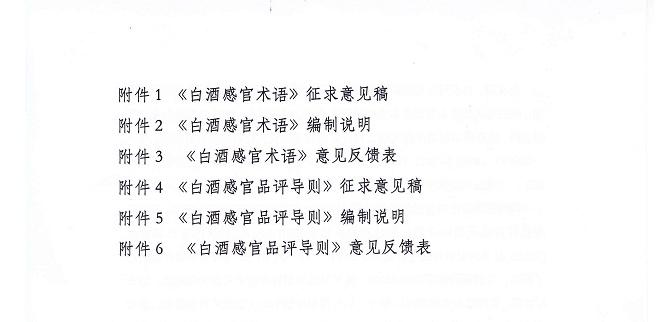 附件1 《白酒感官术语》征求意见稿
附件2 《白酒感官术语》编制说明
附件3 《白酒感官术语》意见反馈表
附件4 《白酒感官品评导则》征求意见稿
附件5 《白酒感官品评导则》编制说明
附件6 《白酒感官品评导则》意见反馈表